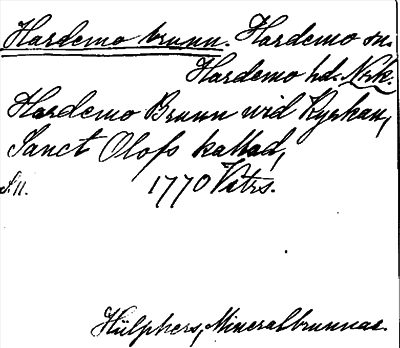 Hardemo brunn. Hardemo sn.
Hardemo hd. Nrk.
Hardemo Brunn wid Kyrkan,
Sanct Olofs kallad,
S. 11. 1770 Vitrs.
Hülphers, Mineralbrunnar.